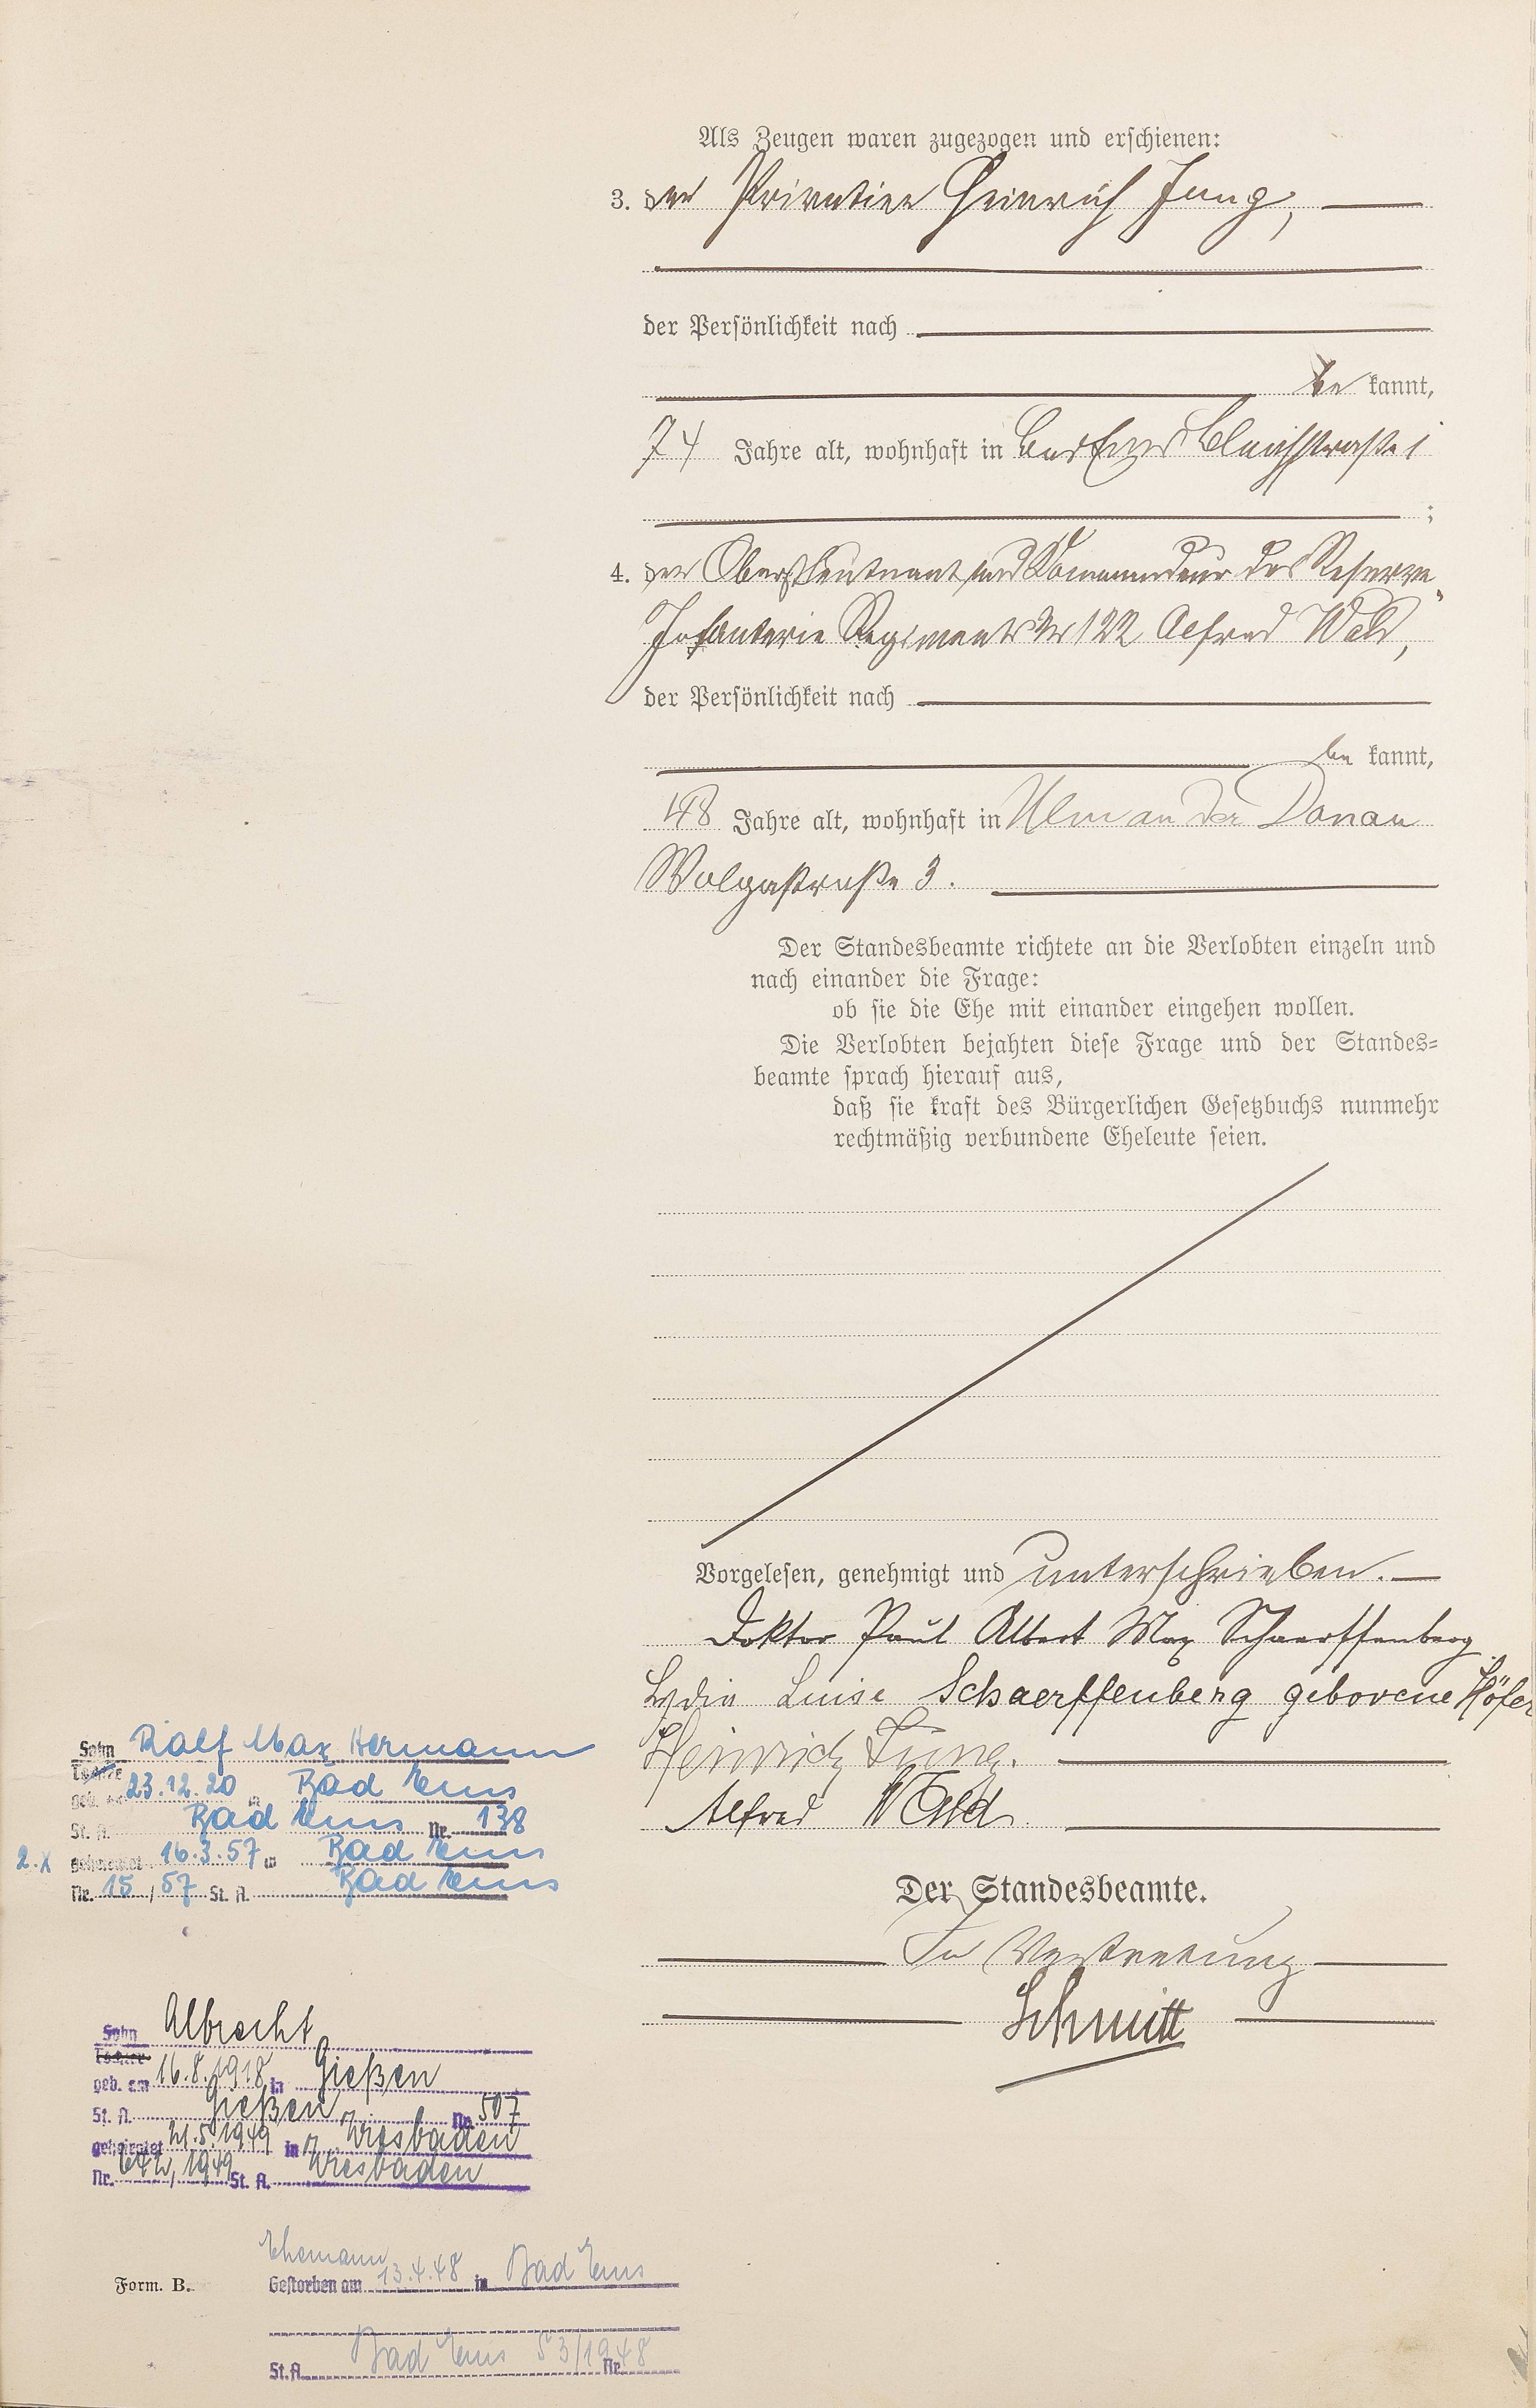 Als Zeugen waren zugezogen und erschienen:
3. der Privatier Heinrich Jung,
der Persönlichkeit nach
be kannt,
74 Jahre alt, wohnhaft in Bad Ems Bleichstraße 1
;
4. der Oberstleutnant und Kommandeur des Reserve
Infanterie Regiments Nr 122 Alfred Wald,
der Persönlichkeit nach
be kannt,
48 Jahre alt, wohnhaft in Ulm an der Donau
Wolgastraße 3.
Der Standesbeamte richtete an die Verlobten einzeln und
nach einander die Frage:
ob sie die Ehe mit einander eingehen wollen.
Die Verlobten bejahten diese Frage und der Standes=
beamte sprach hierauf aus,
daß sie kraft des Bürgerlichen Gesetzbuchs nunmehr
rechtmäßig verbundene Eheleute seien.
Vorgelesen, genehmigt und unterschrieben.
Doktor Paul Albert Max Schaerffenberg
Lydia Luise Schaerffenberg geborene Höfer
Heinrich Jung.
Alfred Wald.
Der Standesbeamte.
In Vertretung
Schmitt
Sohn Rolf Max Hermann
Tochter
geb. am 23.12.20 in Bad Ems
St. A. Bad Ems Nr. 138
2.x geheiratet 16.3.57 in Bad Ems
Nr. 15/57 St. A. Bad Ems
Sohn Albrecht
Tochter
geb. am 16.8.1918 in Gießen
St. A. Gießen Nr. 507
geheiratet 21.5.1949 in Wiesbaden
Nr. 642/1949 St. A. Wiesbaden
Ehemann
Gestorben am 13.4.48 in Bad Ems
St. A. Bad Ems 53/1948 Nr.
Form. B.